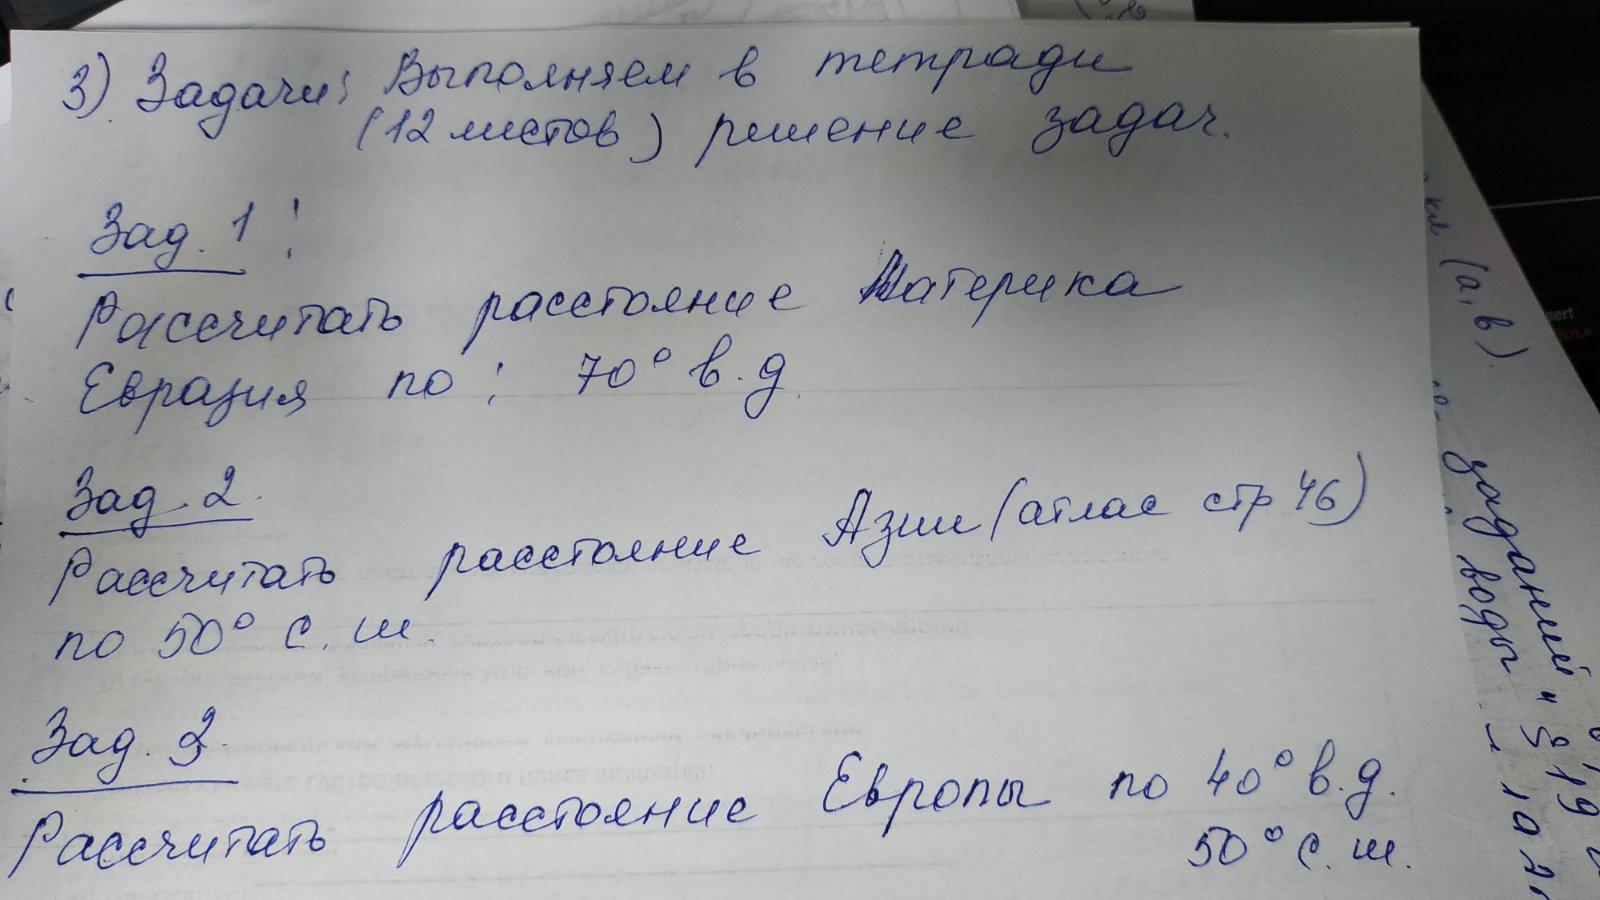 3) Задачи: Выполняем в тетради
(12 листов) решение задач.
Зад. 1:
Рассчитать расстояние Материка
Евразия по: 70° в.д.
Зад. 2.
Рассчитать расстояние Азии (атлас стр 46)
по 50° с.ш.
Зад. 3.
Рассчитать расстояние Европы по 40° в.д.
50° с.ш.
кл (а, в).
заданий "
воды
§ 19